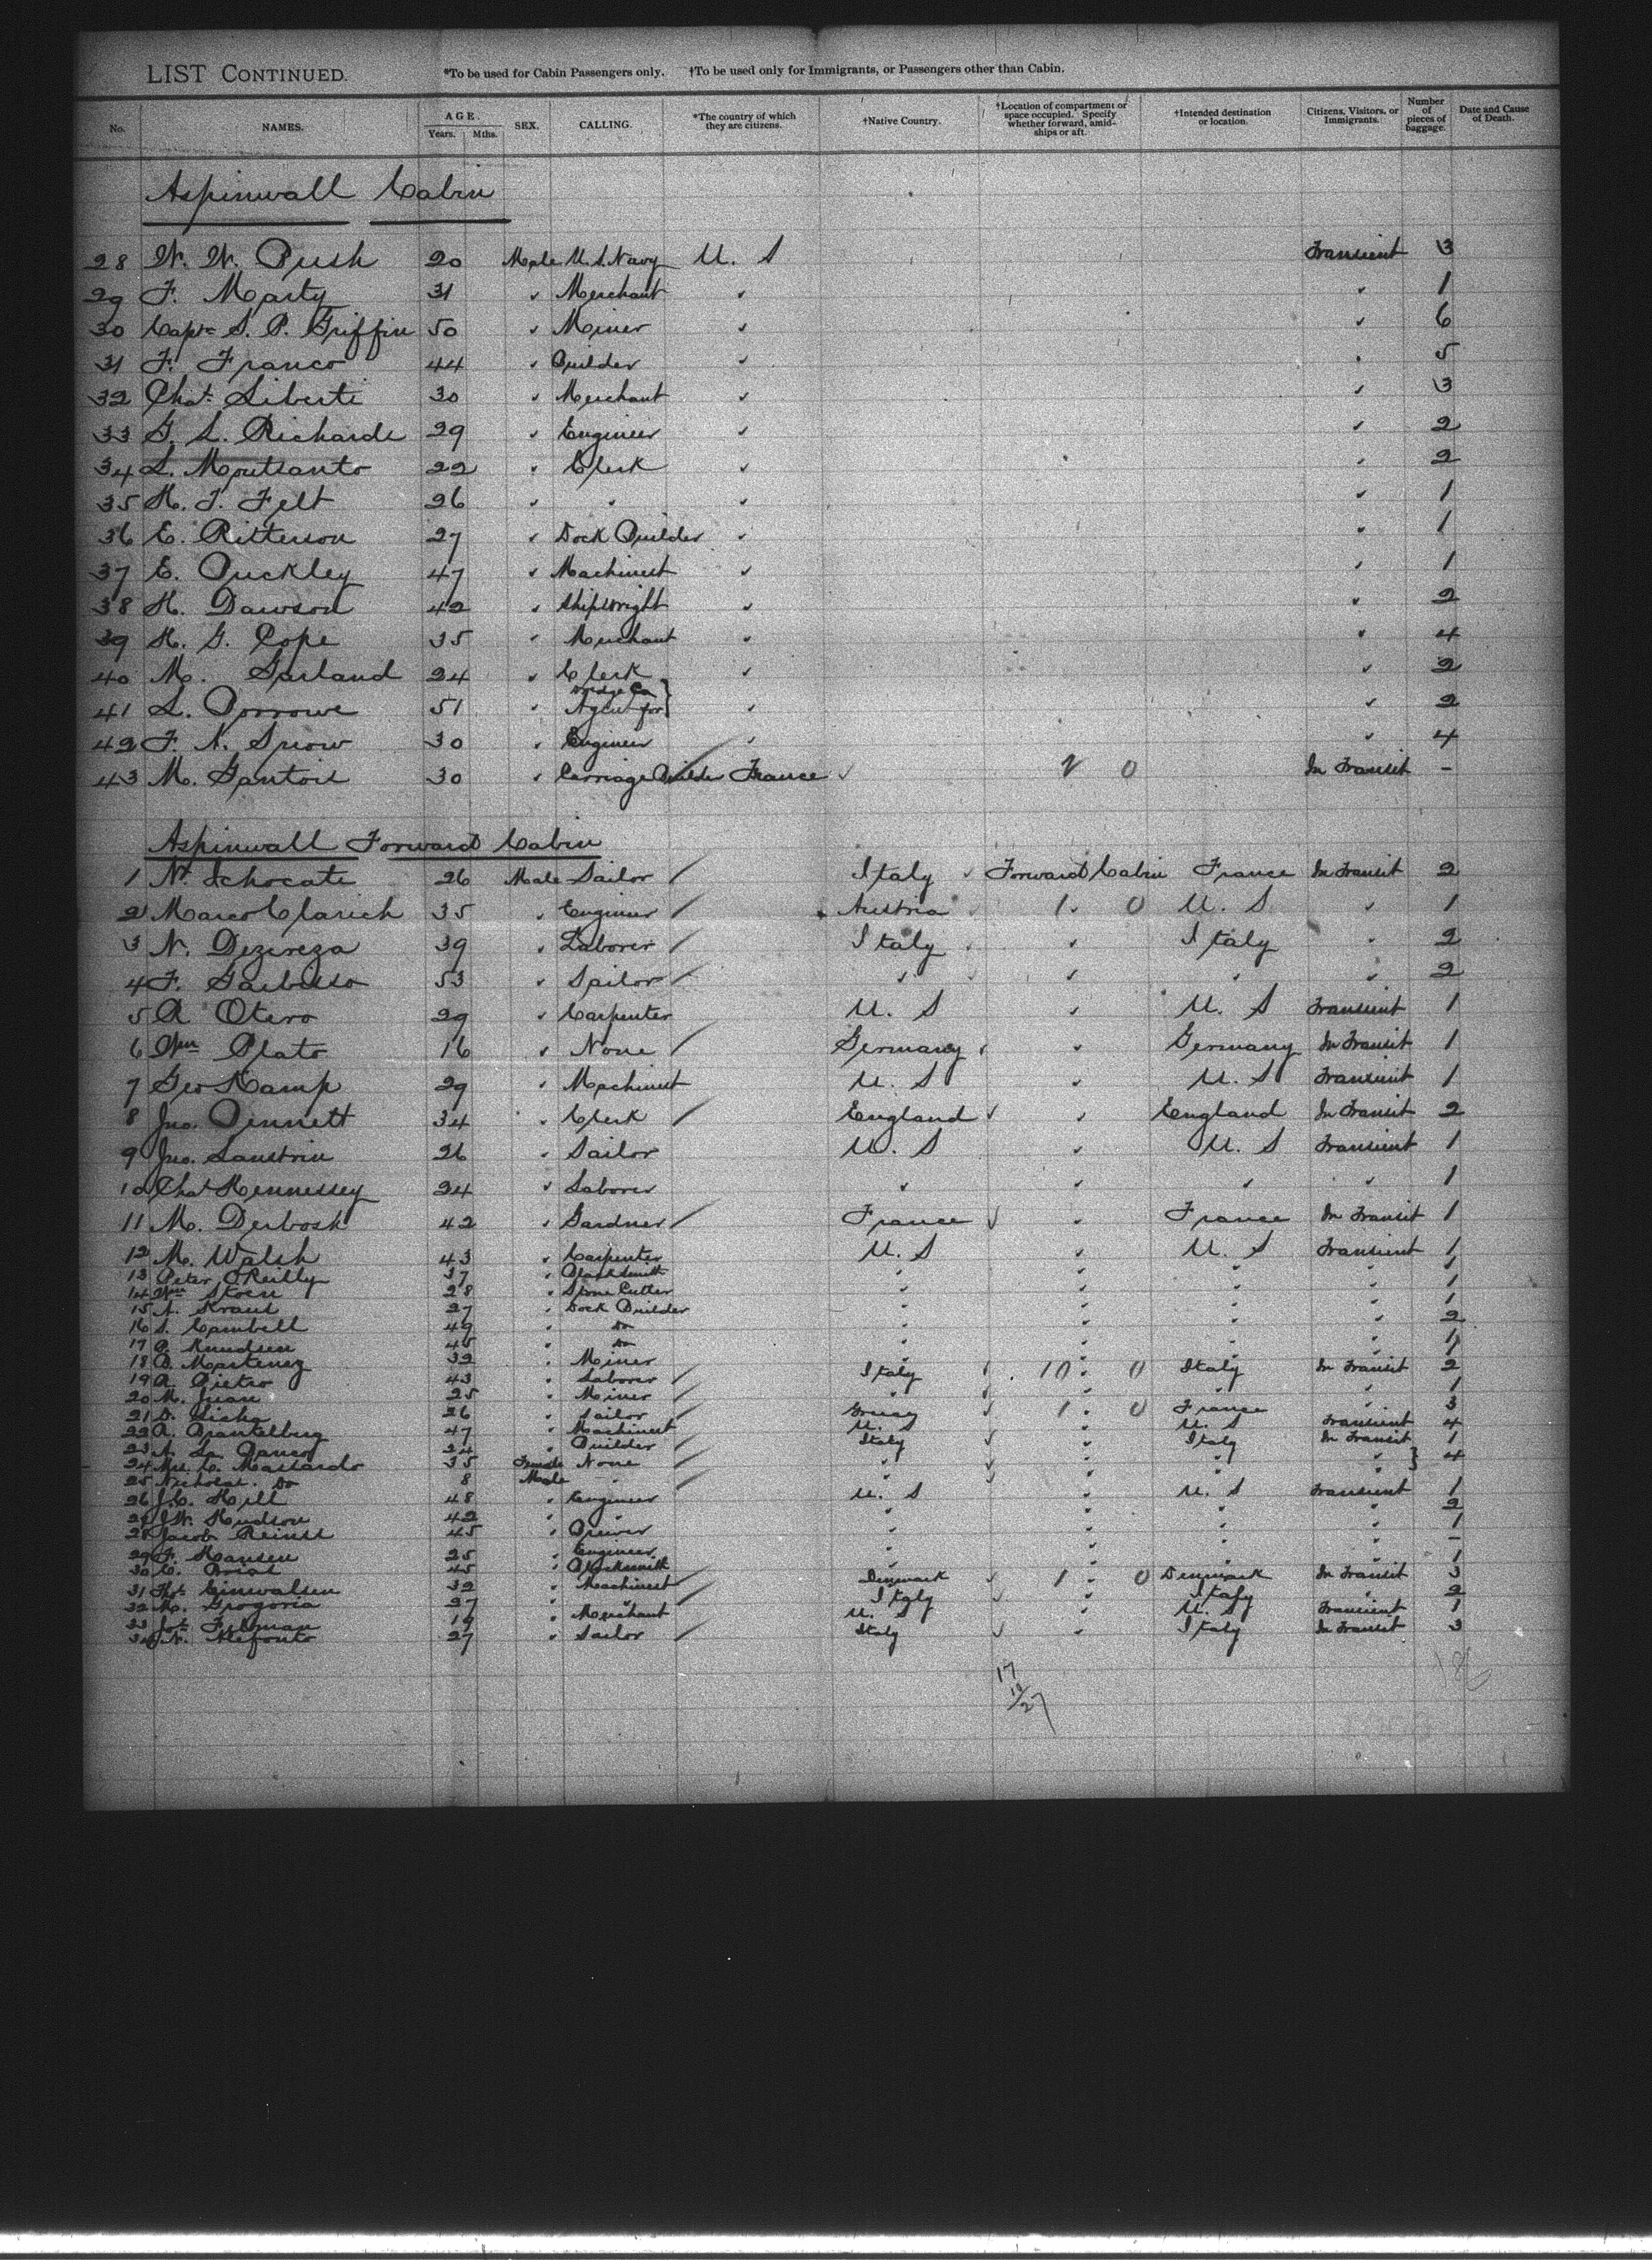 LIST CONTINUED. *To be used for Cabin Passengers only. †To be used only for Immigrants, or Passengers other than Cabin.
No. NAMES. AGE. Years. Mths. SEX. CALLING. *The country of which they are citizens. †Native Country. †Location of compartment or space occupied. Specify whether forward, amidships or aft. †Intended destination or location. Citizens, Visitors, or Immigrants. Number of pieces of baggage. Date and Cause of Death.
Aspinwall Cabin
28 W. W. Bush 20 Male U.S. Navy U. S Transient 3
29 F. Marty 31 " Merchant " " 1
30 Capt. S. P. Griffin 50 " Miner " " 6
31 F. Franco 44 " Builder " " 5
32 Chas. Liberti 30 " Merchant " " 3
33 G. L. Richards 29 " Engineer " " 2
34 L. Moutsanto 22 " Clerk " " 2
35 H. T. Felt 26 " " " " 1
36 E. Ritterson 27 " Dock Builder " " 1
37 E. Buckley 47 " Machinest " " 1
38 H. Dawson 42 " Shipwright " " 2
39 H. G. Cope 35 " Merchant " " 4
40 M. Garland 24 " Clerk " " 2
41 L. 51 " Agent for Dredge Co } " " 2
42 F. N. Snow 30 " Engineer " " 4
43 M. Gantois 30 " Carriage Builder France 2 0 In Transit -
Aspinwall Forward Cabin
1 N. Schocate 26 Male Sailor Italy Forward Cabin France In Transit 2
2 Marco Clarich 35 " Engineer Austria 1 " 0 U. S " 1
3 N. Dezereza 39 " Laborer Italy " Italy " 2
4 F. 53 " Sailor " " " " 2
5 A Otero 29 " Carpenter U. S " U. S Transient 1
6 Wm Plato 16 " None Germany " Germany In Transit 1
7 Geo Kamp 29 " Machinest U. S " U. S Transient 1
8 Jno. Bennett 34 " Clerk England " England In Transit 2
9 Jno. Saustrin 26 " Sailor U. S " U. S Transient 1
10 Chas Hennessey 24 " Laborer " " " " 1
11 M. Derbosk 42 " Gardner France " France In Transit 1
12 M. Walsh 43 " Carpenter U. S " U. S Transient 1
13 Peter O'Reilly 37 " Blacksmith " " " " 1
14 Wm Stoen 28 " Stone Cutter " " " " 1
15 A. Kraus 27 " Dock Builder " " " " 1
16 S. Cambell 49 " Do " " " " 2
17 P. Knudsen 45 " Do " " " " 1
18 D. Martenez 32 " Miner " " " " 1
19 A. Pietro 43 " Laborer Italy 10 " 0 Italy In Transit 2
20 M. Juan 25 " Miner " " " " 1
21 D. Licha 26 " Sailor 1 " 0 France " 3
22 A. Brantelberg 47 " Machinest U. S " U. S Transient 4
23 24 " Builder Italy " Italy In Transit 1
24 Mrs. C. Massardo 35 Female None " " " " } 4
25 Nicholas. Do 8 Male " " " " "
26 J. C. Hill 48 " Engineer U. S " U. S Transient 1
27 J. W. Hudson 42 " " " " " " 2
28 Jacob Reinst 45 " Brewer " " " " 1
29 F. Hansen 25 " Engineer " " " " -
30 C. 45 " Blacksmith " " " " 1
31 Thos Einwalsen 32 " Machinest Denmark 1 " 0 Denmark In Transit 3
32 M. Grogoria 27 " " Italy " Italy " 2
33 Jos. Feldman 19 " Merchant U. S " U. S Transient 1
34 N. 27 " Sailor Italy " Italy In Transit 3
17
10
27